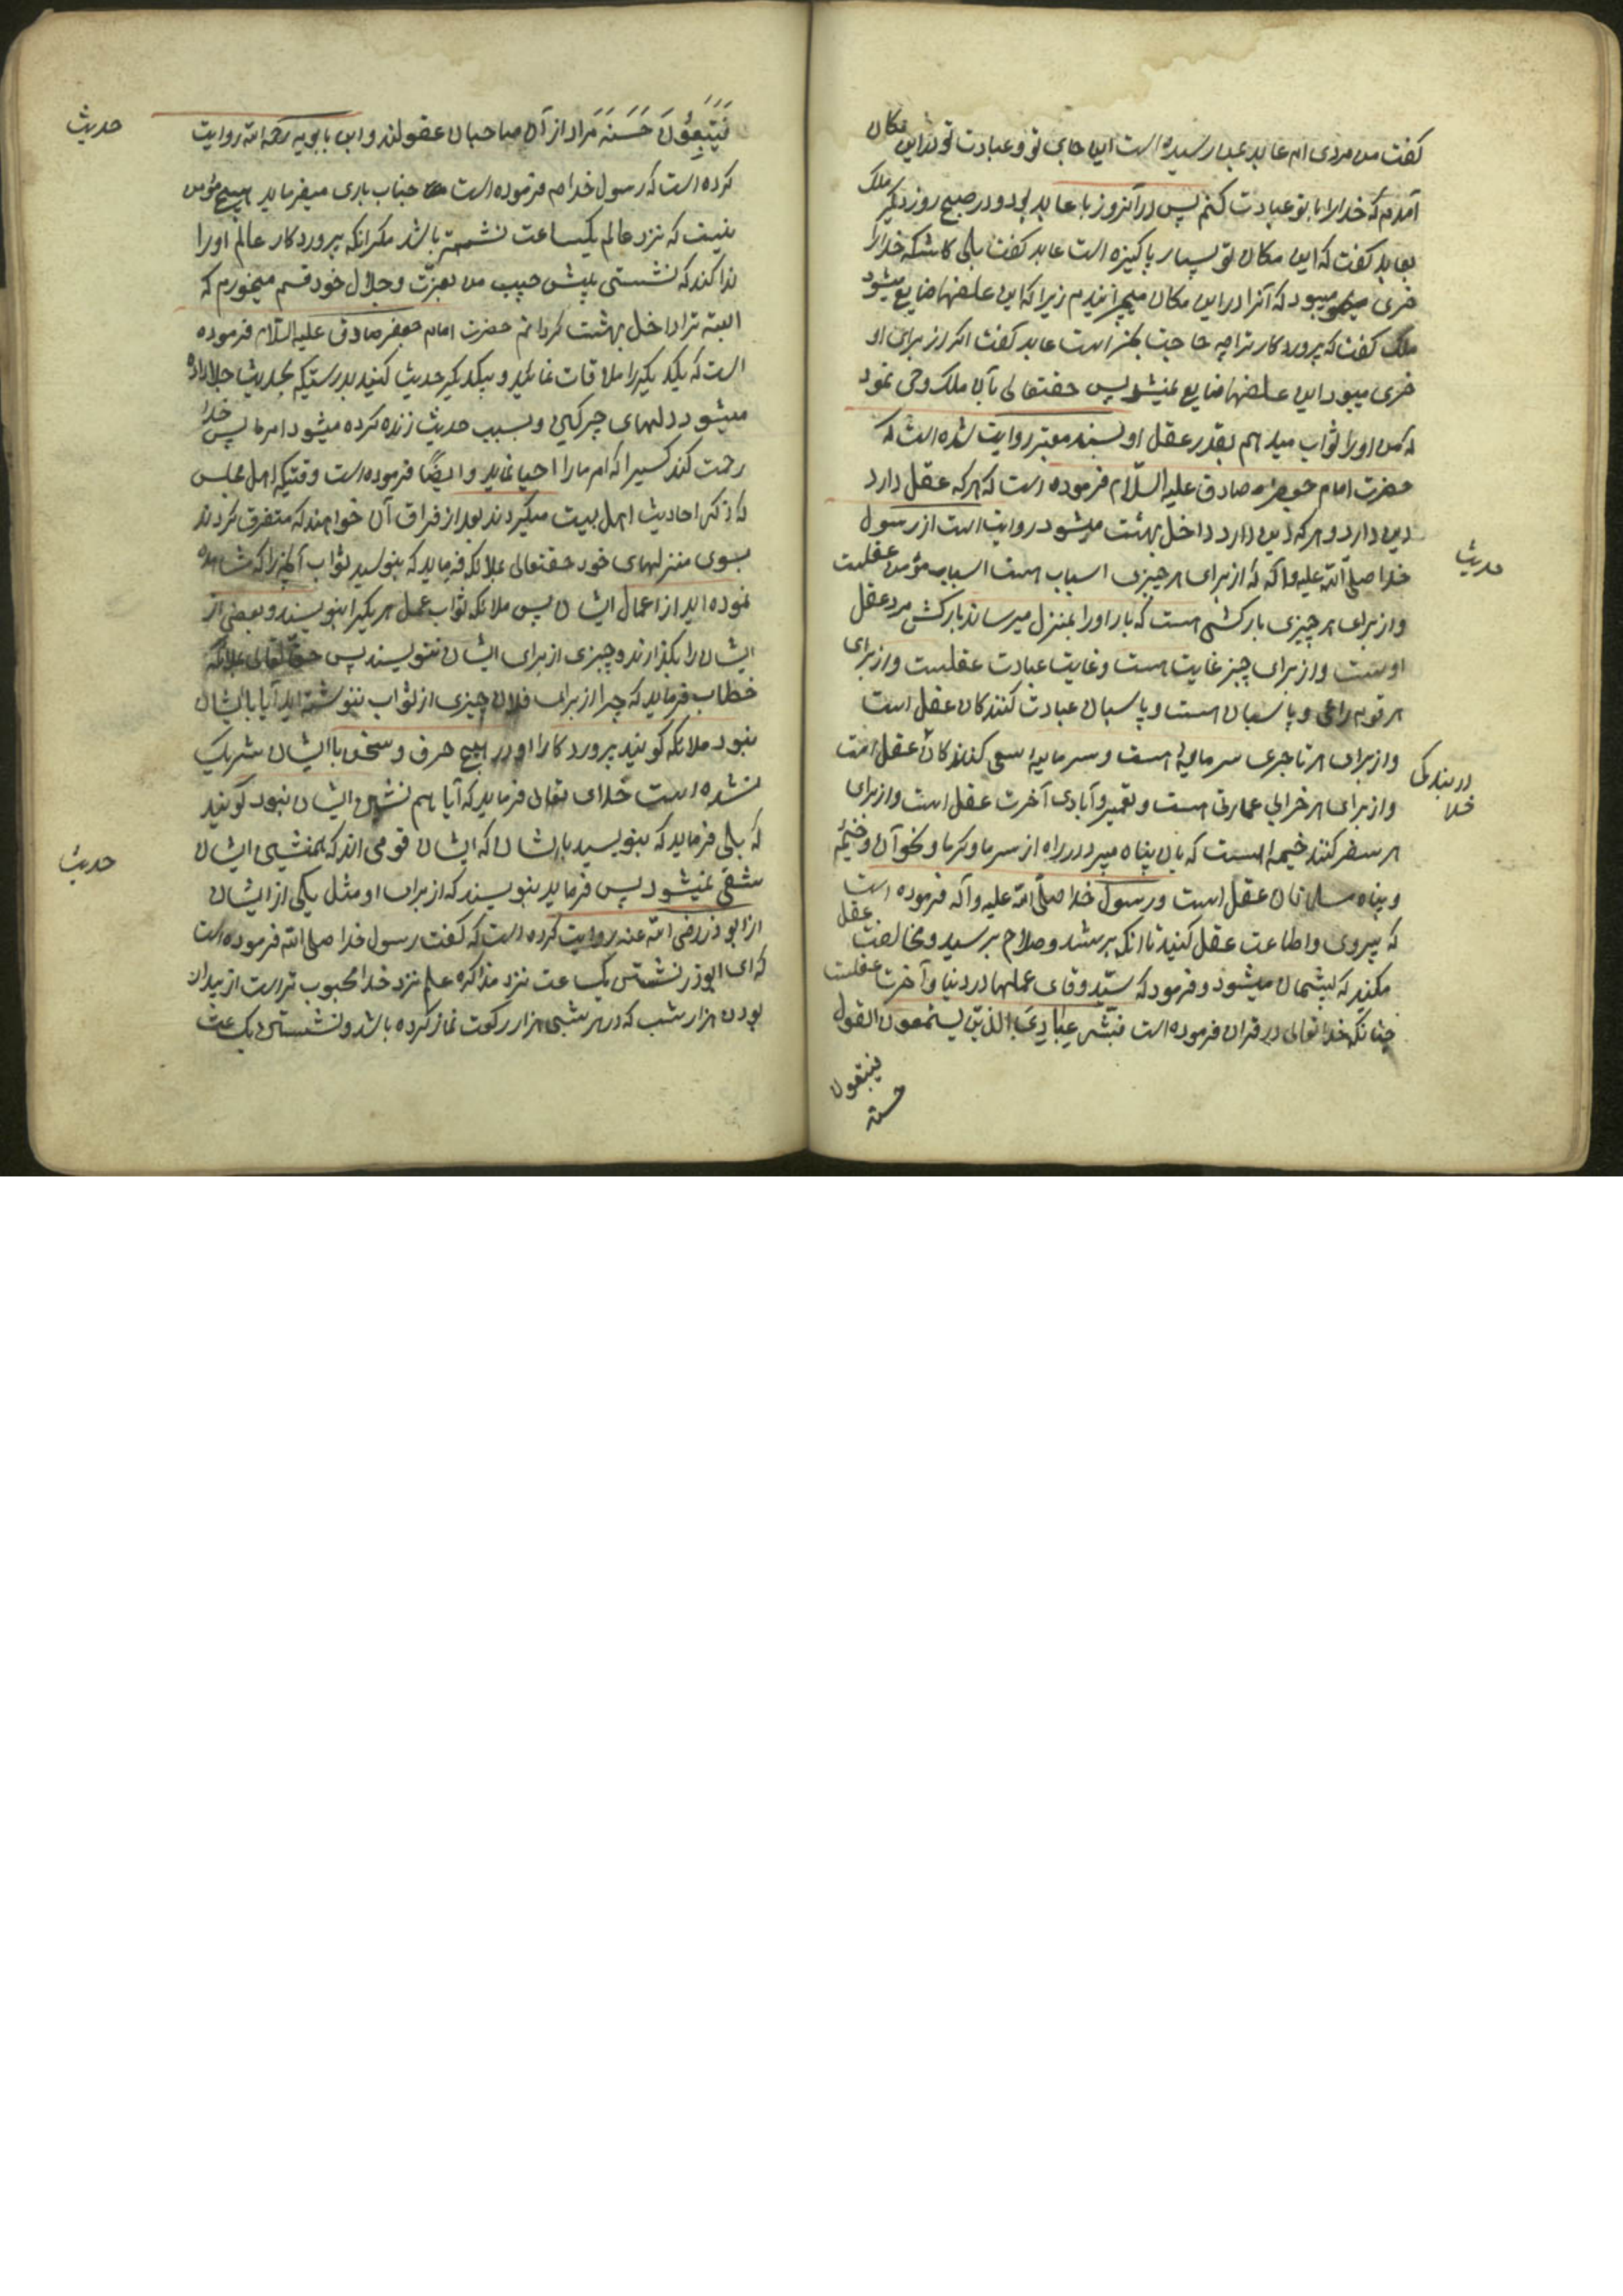 گفت من مردی ام عابد بمن رسیده است این جای تو و عبادت تو در این مکان
آمدم که خدا را با تو عبادت کنم پس در آنروز با عابد بود و در صبح روز دیگر ملک
بعابد گفت که این مکان تو بسیار پاکیزه است عابد گفت بلی کاشکه خدا را
خری میبود که آنرا در این مکان میچرانیدم زیرا که این علفها ضایع میشود
ملک گفت که پروردگار ترا چه حاجت بخر است عابد گفت اگر از برای او
خری میبود این علفها ضایع نمیشد پس حقتعالی بآن ملک وحی نمود
که من او را ثواب میدهم بقدر عقل او بسند معتبر روایت شده است که
حضرت امام جعفر صادق علیه السلام فرموده است که هر که عقل دارد
دین دارد و هر که دین دارد داخل بهشت میشود روایت است از رسول
حدیث
خدا صلی الله علیه و آله که از برای هر چیزی اسباب هست اسباب مؤمن عقلست
و از برای هر چیزی بارکشی هست که بار او را بمنزل میرساند بارکش مرد عقل
اوست و از برای چیز غایت هست و غایت عبادت عقلست و از برای
هر قوم راعی و پاسبان هست و پاسبان عبادت کنندکان عقل است
و از برای هر تاجری سرمایه هست و سرمایه سعی کنندکان عقل است
در بندگی خدا
و از برای هر خرابی عمارتی هست و تعمیر و آبادی آخرت عقل است و از برای
هر سفر کننده خیمه هست که بان پناه میبرد در راه از سرما و گرما و نحو آن و خیمه
و پناه مسلمانان عقل است و رسول خدا صلی الله علیه و آله فرموده است
که پیروی و اطاعت عقل کنید تا انکه برشد و صلاح برسید و مخالفت عقل
مکنید که پشیمان میشوید و فرمود که سید وقای عملها در دنیا و آخرت عقلست
چنانکه خدا تعالی در قران فرموده است فبشر عبادی الذین یستمعون القول
فیتبعون
حسنه
فَیَتَّبِعُونَ حَسَنَهُ مراد از آن صاحبان عقولند و ابن بابویه رحمه الله روایت
حدیث
کرده است که رسول خدا ص فرموده است جناب باری میفرماید هیچ مؤمن
نیست که نزد عالم یکساعت نشسته باشد مکر انکه پروردکار عالم او را
ندا کند که نشستی پیش حبیب من بعزت و جلال خود قسم میخورم که
البته ترا داخل بهشت کردانم حضرت امام جعفر صادق علیه السلام فرموده
است که یکدیکر را ملاقات نمائید و بیکدیکر حدیث کنید بدرستیکه بحدیث جلا داده
میشود دلهای چرکین و بسبب حدیث زنده کرده میشود امر ما پس خدا
رحمت کند کسیرا که امر ما را احیا نماید و ایضًا فرموده است وقتیکه اهل مجلس
که ذکر احادیث اهل بیت میکردند بعد از فراق آن خواهند که متفرق کردند
بسوی منزلهای خود حقتعالی بملائکه فرماید که بنویسید ثواب آنچه را که مشاهده
نموده اید از اعمال ایشان پس ملائکه ثواب عمل هر یکیرا بنویسند و بعضی از
ایشان را بکذارند و چیزی از برای ایشان ننویسند پس حق تعالی بملائکه
خطاب فرماید که چرا از برای فلان چیزی از ثواب ننوشته اید آیا با ایشان
نبود ملائکه کویند پروردکارا او در هیچ حرف و سخن با ایشان شریک
نشده است خدای تعالی فرماید که آیا هم نشین ایشان نبود کویند
که بلی فرماید که بنویسید با ایشان که ایشان قومی اند که همنشین ایشان
حدیث
شقی نمیشود پس فرماید بنویسند که از برای او مثل یکی از ایشان
از ابوذر رضی الله عنه روایت کرده است که کفت رسول خدا صلی الله فرموده است
که ای ابوذر نشستن یکساعت نزد مذاکره علم نزد خدا محبوب تر است از بیدار
بودن هزار شب که در هر شبی هزار رکعت نماز کرده باشد و نشستن یکساعت